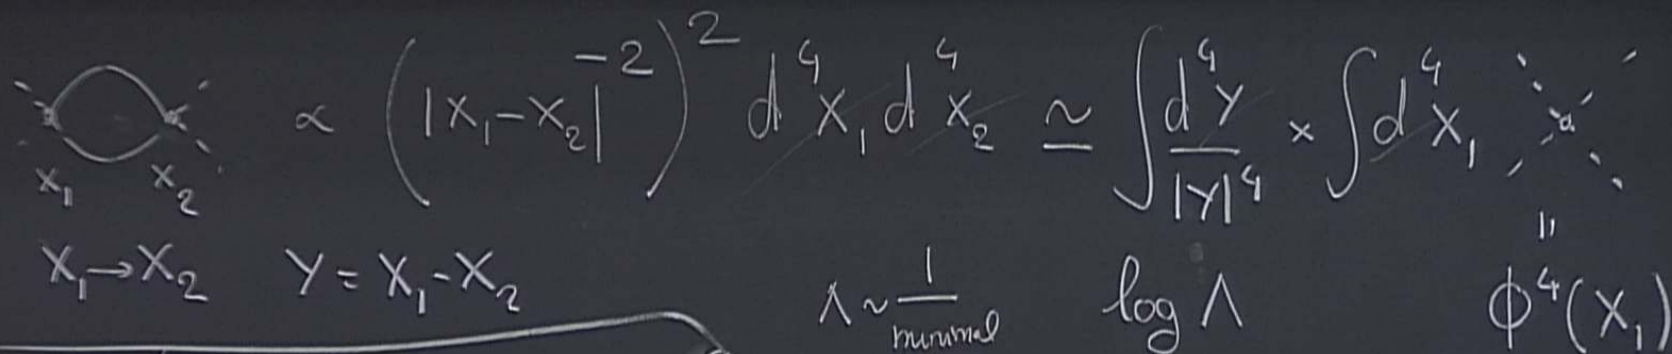 ∝ (|x₁-x₂|⁻²)² d⁴x₁ d⁴x₂ ≃ ∫ d⁴y/|y|⁴ × ∫ d⁴x₁
x₁ x₂
x₁→x₂ y = x₁-x₂ Λ ~ 1/minimal log Λ ϕ⁴(x₁)